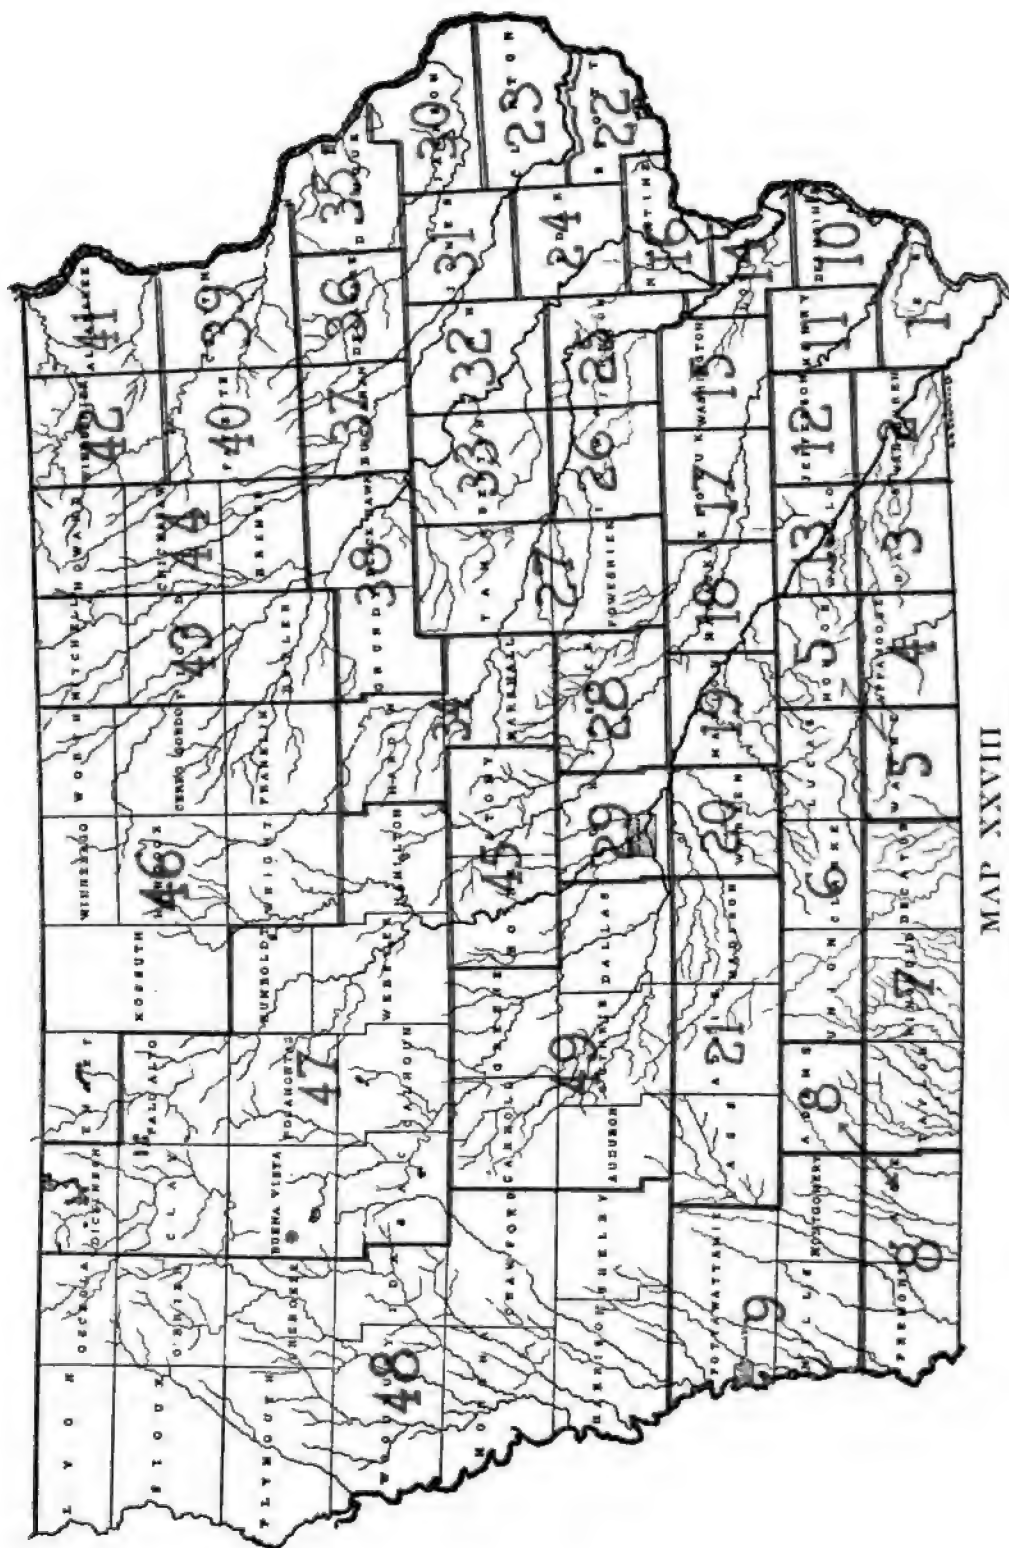 LYON
OSCEOLA
DICKINSON
EMMET
KOSSUTH
WINNEBAGO
WORTH
MITCHELL
HOWARD
WINNESHIEK
42
ALLAMAKEE
41
SIOUX
O'BRIEN
CLAY
PALO ALTO
HANCOCK
46
CERRO GORDO
FLOYD
43
CHICKASAW
44
FAYETTE
40
CLAYTON
39
PLYMOUTH
CHEROKEE
BUENA VISTA
POCAHONTAS
47
HUMBOLDT
WRIGHT
FRANKLIN
BUTLER
BREMER
WOODBURY
48
IDA
SAC
CALHOUN
WEBSTER
HAMILTON
HARDIN
34
GRUNDY
38
BLACK HAWK
BUCHANAN
37
DELAWARE
36
DUBUQUE
35
MONONA
CRAWFORD
CARROLL
GREENE
BOONE
STORY
45
MARSHALL
TAMA
27
BENTON
33
LINN
32
JONES
31
JACKSON
30
HARRISON
SHELBY
AUDUBON
GUTHRIE
49
DALLAS
29
28
POWESHIEK
26
25
24
CLINTON
23
SCOTT
22
POTTAWATTAMIE
9
CASS
ADAIR
21
MADISON
WARREN
20
MARION
19
18
KEOKUK
17
WASHINGTON
15
14
MUSCATINE
16
MILLS
MONTGOMERY
ADAMS
8
UNION
CLARKE
6
LUCAS
MONROE
5
WAPELLO
13
JEFFERSON
12
HENRY
11
DES MOINES
10
FREMONT
8
PAGE
TAYLOR
RINGGOLD
7
DECATUR
WAYNE
5
APPANOOSE
4
DAVIS
3
VAN BUREN
2
LEE
1
MAP XXVIII